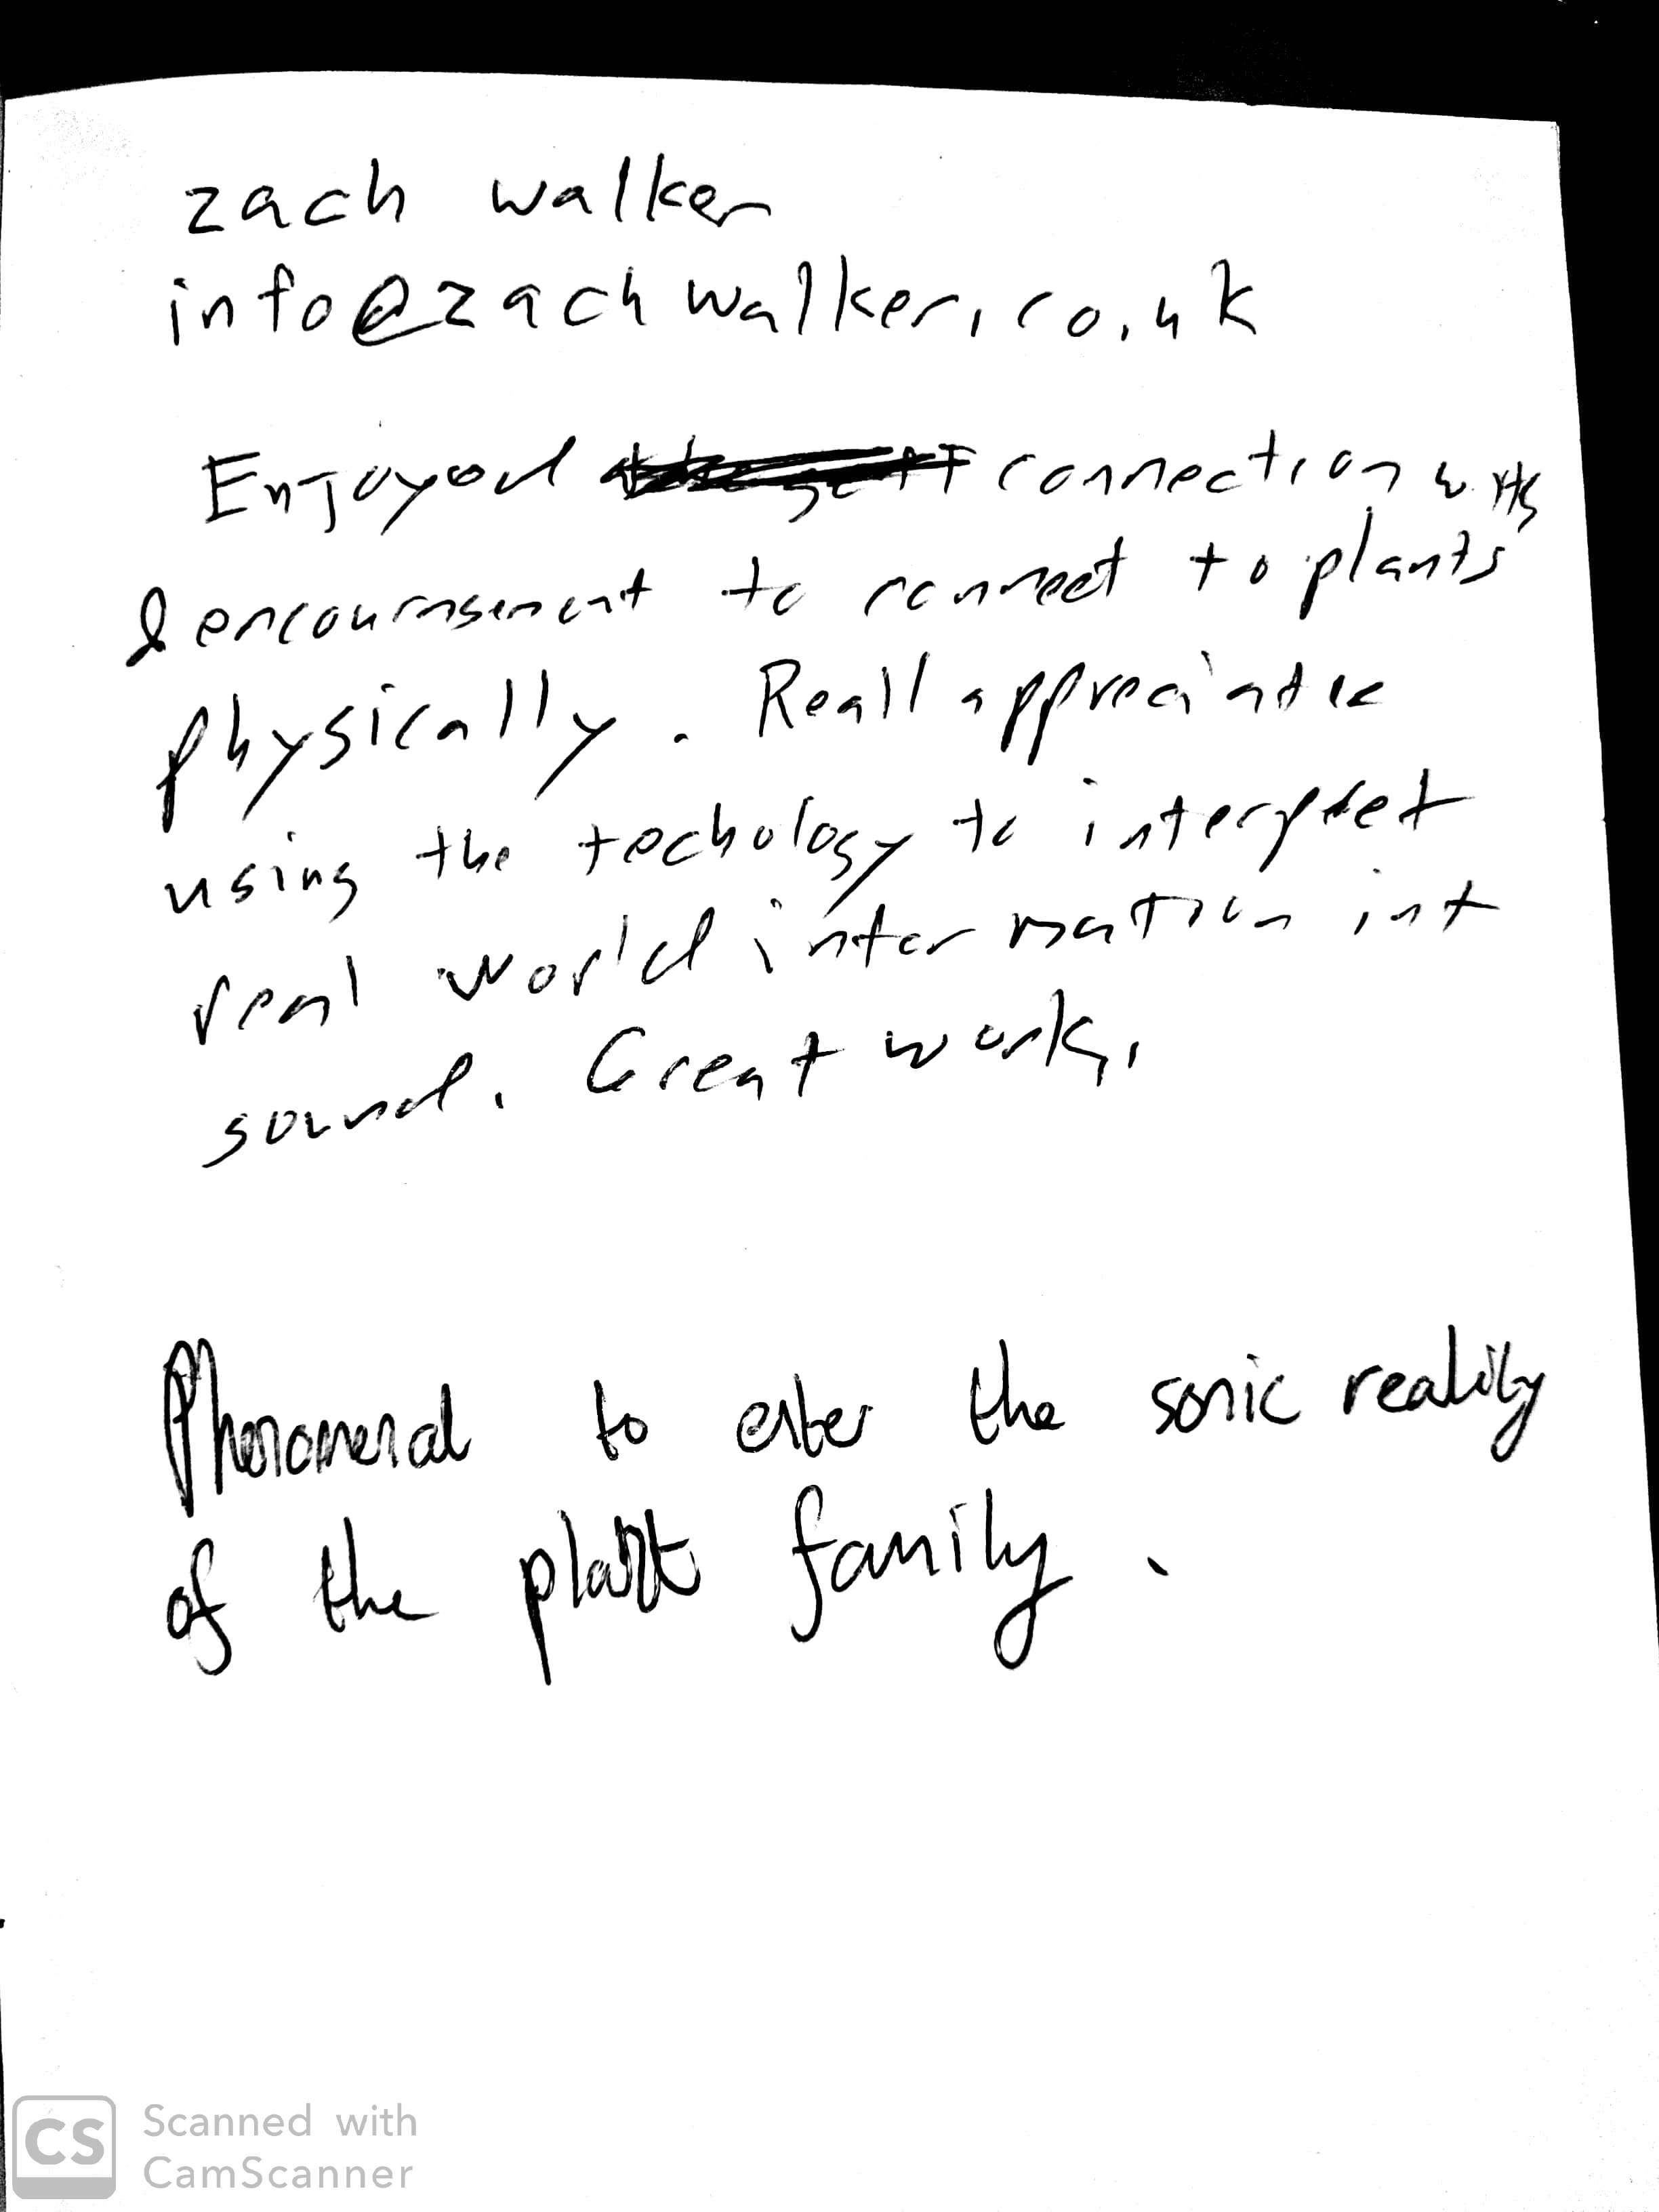 zach walker
info@zachwalker.co.uk
Enjoyed connection with
& encouragement to connect to plants
physically. Reall appreciate
using the techology to interpret
real world information int
sound. Great work.
Phenomenal to enter the sonic reality
of the plant family.
CS Scanned with
CamScanner